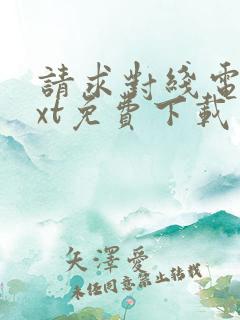 請求對綫電
xt免費下載
矢澤愛
未經同意禁止轉載